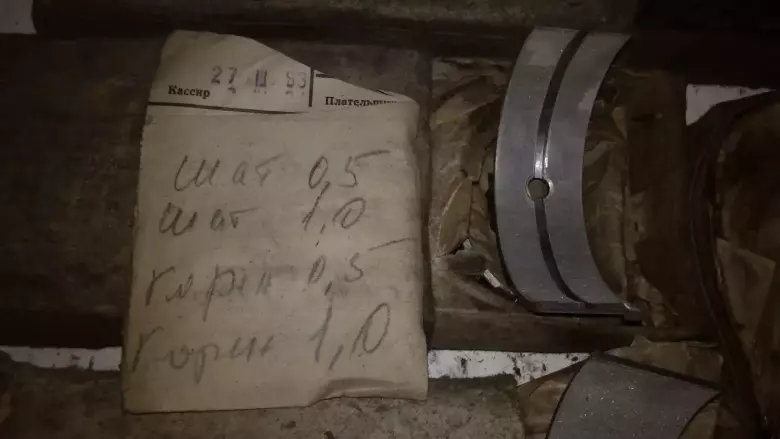 27 III 83
Кассир
Плательщи
шат 0,5
шат 1,0
корен 0,5
корен 1,0